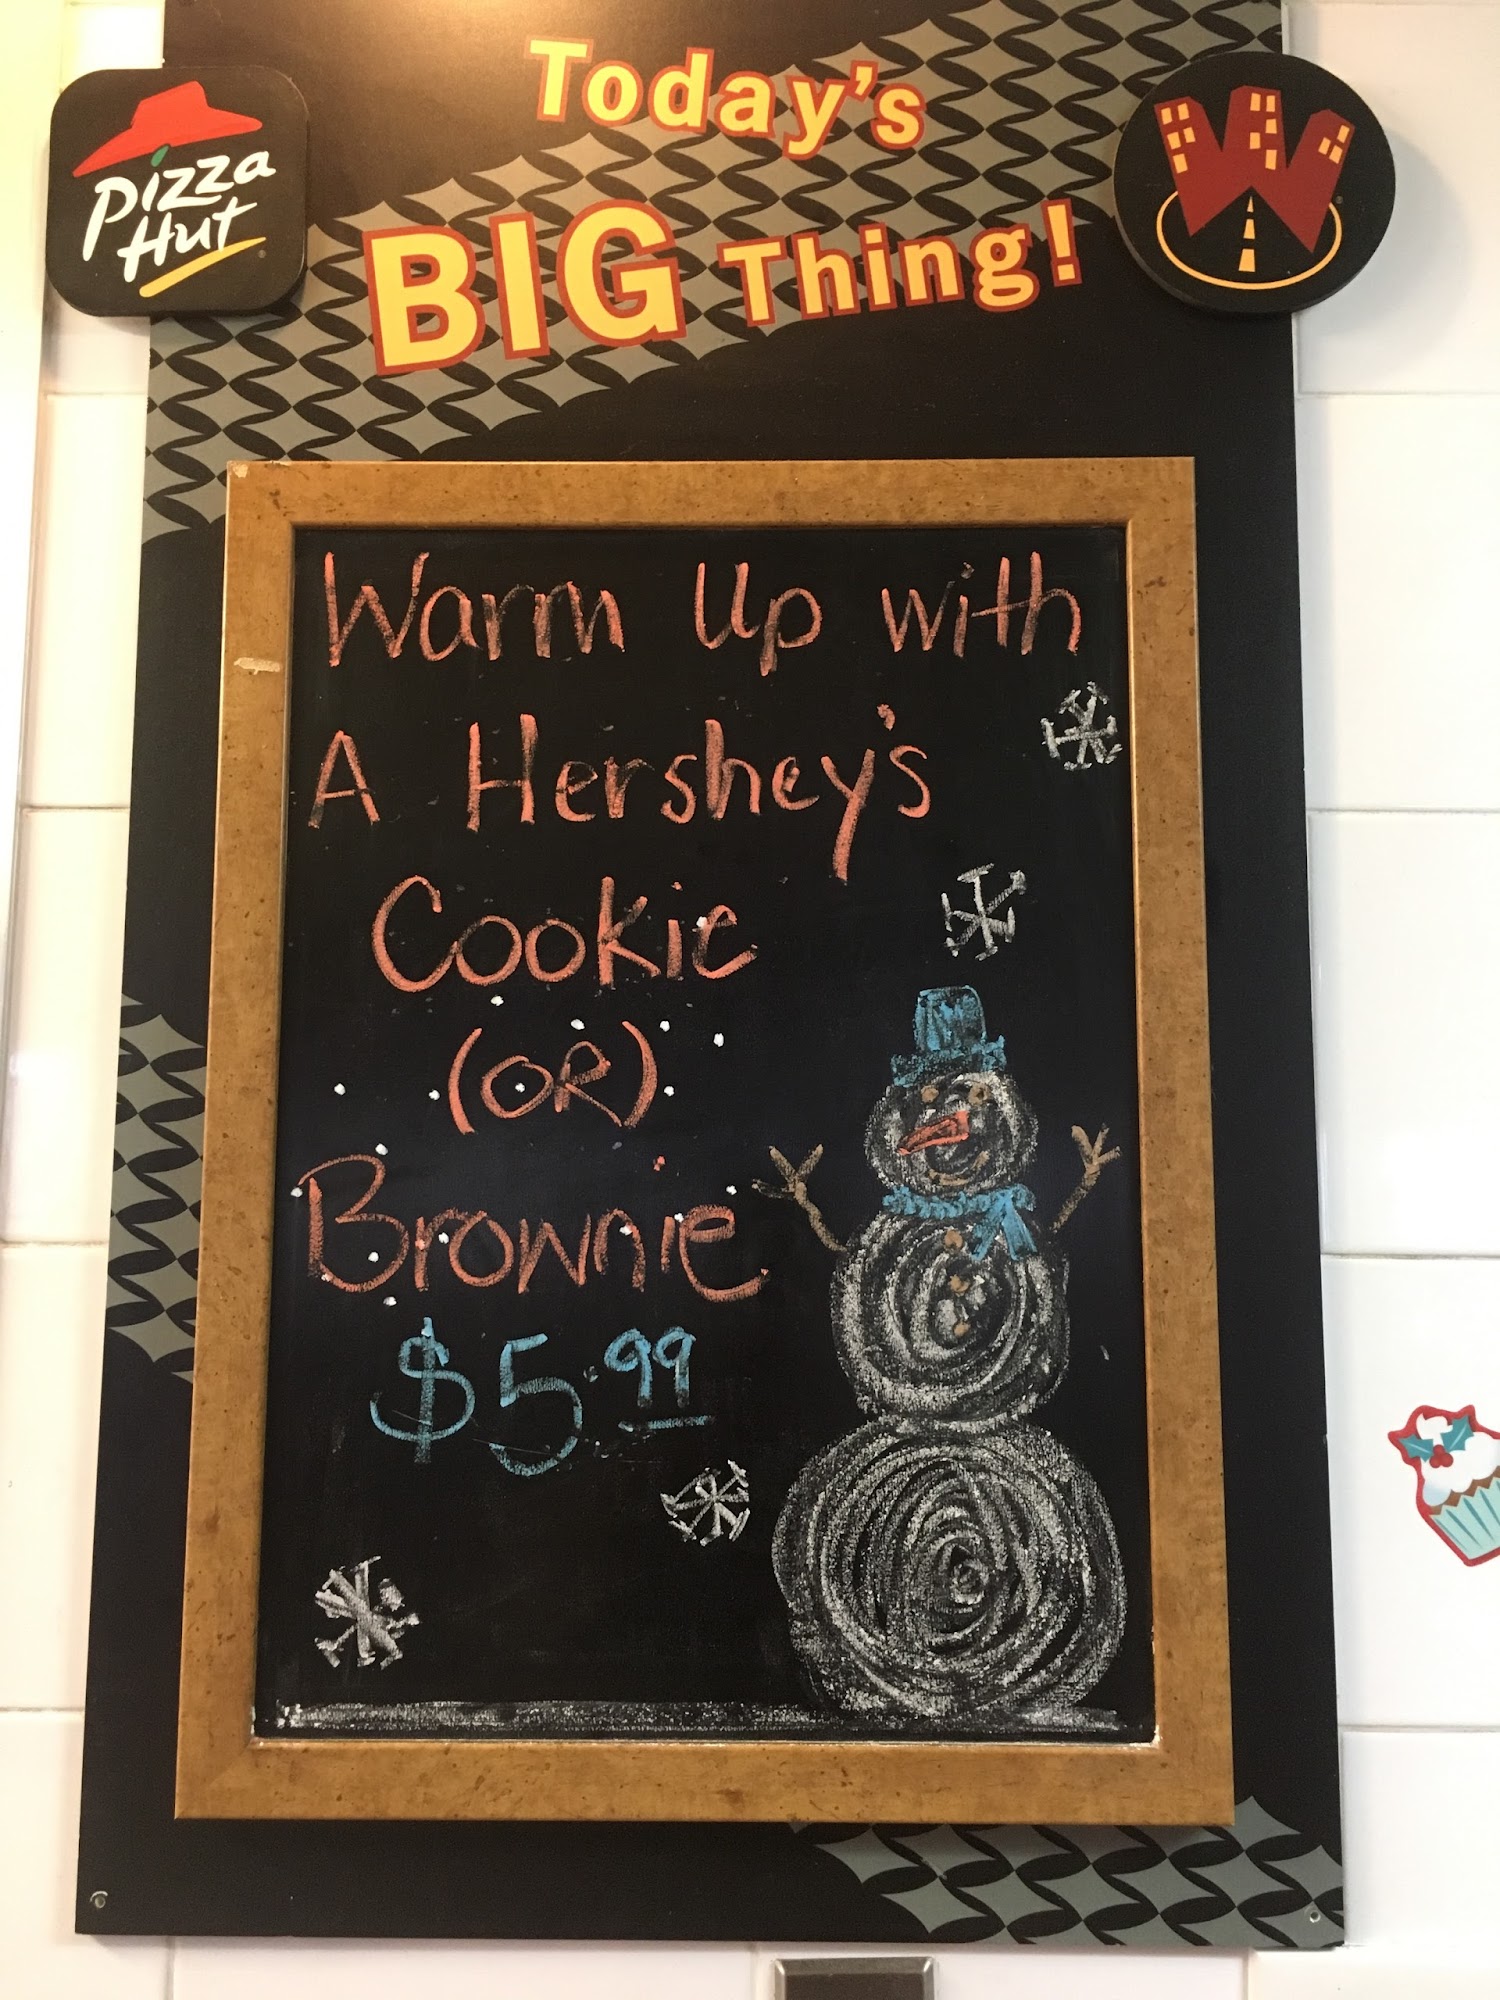 Today's
BIG Thing!
Pizza
Hut
W
Warm Up with
A Hershey's
Cookie
(OR)
Brownie
$5.99